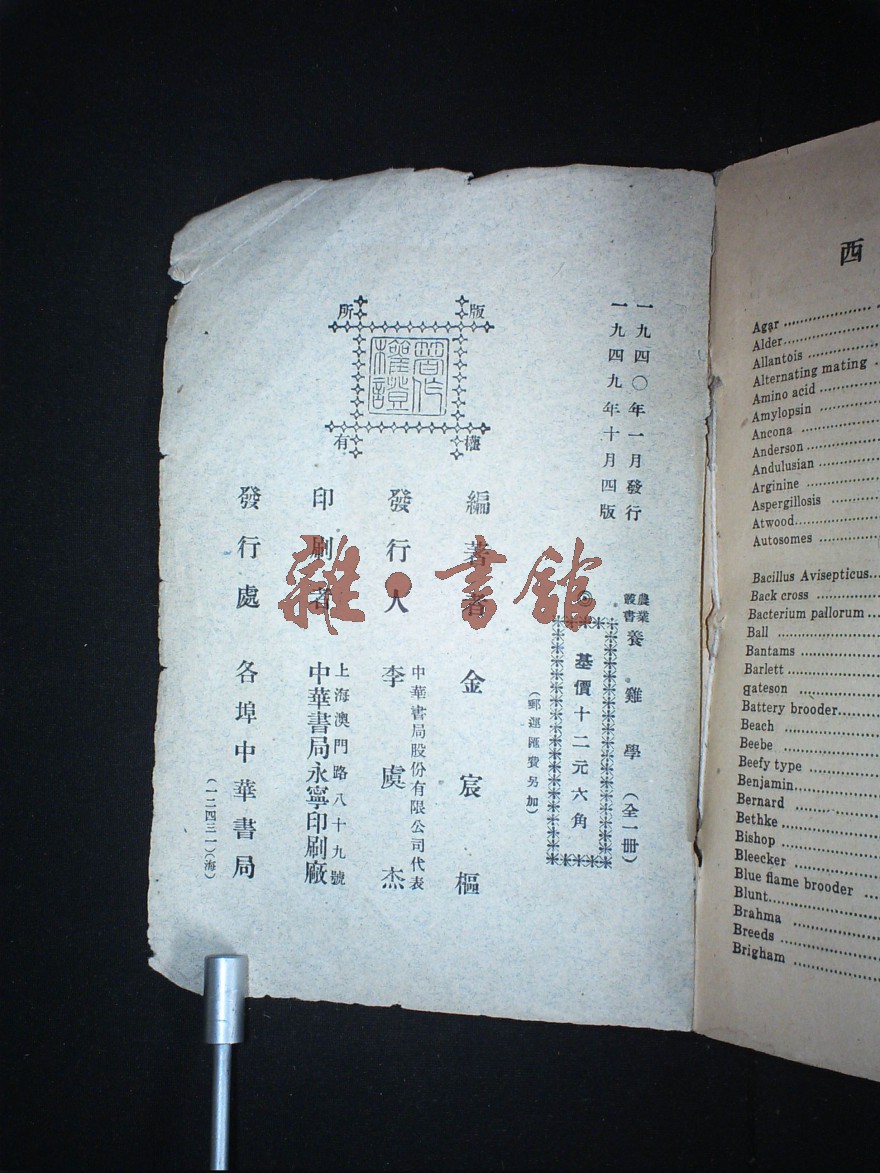 一九四〇年一月發行
一九四九年十月四版
農業叢書 養雞學（全一冊）
◎
基價十二元六角
（郵運匯費另加）
版權所有
著作權證
編著者 金宸樞
發行人 中華書局股份有限公司代表 李虞杰
印刷者 上海澳門路八十九號 中華書局永寧印刷廠
發行處 各埠中華書局
（一二四三一）（海）
雜·書館
西
Agar
Alder
Allantois
Alternating mating
Amino acid
Amylopsin
Ancona
Anderson
Andulusian
Arginine
Aspergillosis
Atwood
Autosomes
Bacillus Avisepticus
Back cross
Bacterium pallorum
Ball
Bantams
Barlett
gateson
Battery brooder
Beach
Beebe
Beefy type
Benjamin
Bernard
Bethke
Bishop
Bleecker
Blue flame brooder
Blunt
Brahma
Breeds
Brigham